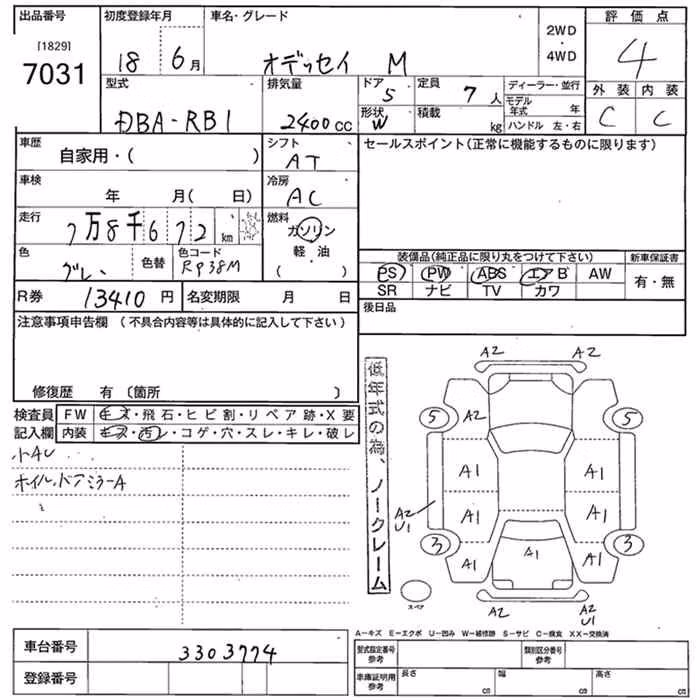 出品番号 初度登録年月 車名・グレード 2WD ・ 4WD 評価点
[1829]
7031 18 6月 オデッセイ M 4
型式 排気量 ドア 5 定員 7人 ディーラー・並行 外装 内装
DBA-RB1 2400cc 形状 W 積載 kg モデル年式 年 C C
ハンドル 左・右
車歴 自家用・( ) シフト AT セールスポイント(正常に機能するものに限ります)
車検 年 月( 日) 冷房 AC
走行 7万8千672km 燃料 ガソリン
軽・油
( )
色 グレー 色替 色コード RP38M
装備品(純正品に限り丸をつけて下さい) 新車保証書
PS PW ABS エアB AW 有・無
SR ナビ TV カワ
R券 13410円 名変期限 月 日 後日品
注意事項申告欄 (不具合内容等は具体的に記入して下さい)
修復歴 有 (箇所 )
検査員 FW キズ・飛石・ヒビ割・リペア跡・X要
記入欄 内装 キズ・汚レ・コゲ・穴・スレ・キレ・破レ
小AU
ホイル、ドアミラーA
低年式の為、ノークレーム
A2 A2
5 A2 5
A1 A1
A2 U1 A1 A1
3 A1 A1 A1 3
A2 A2 U1
スペア
A-キズ E-エクボ U-凹み W-補修跡 S-サビ C-腐食 XX-交換済
車台番号 3303774
登録番号
型式指定番号 参考 類別区分番号 参考
車庫証明用 参考 長さ cm 幅 cm 高さ cm